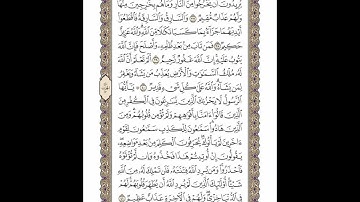 يُرِيدُونَ أَن يَخْرُجُوا۟ مِنَ ٱلنَّارِ وَمَا هُم بِخَـٰرِجِينَ مِنْهَا
وَلَهُمْ عَذَابٌ مُّقِيمٌ ٣٧ وَٱلسَّارِقُ وَٱلسَّارِقَةُ فَٱقْطَعُوٓا۟
أَيْدِيَهُمَا جَزَآءًۢ بِمَا كَسَبَا نَكَـٰلًا مِّنَ ٱللَّهِ وَٱللَّهُ عَزِيزٌ
حَكِيمٌ ٣٨ فَمَن تَابَ مِنۢ بَعْدِ ظُلْمِهِۦ وَأَصْلَحَ فَإِنَّ ٱللَّهَ
يَتُوبُ عَلَيْهِ إِنَّ ٱللَّهَ غَفُورٌ رَّحِيمٌ ٣٩ أَلَمْ تَعْلَمْ أَنَّ ٱللَّهَ
لَهُۥ مُلْكُ ٱلسَّمَـٰوَٰتِ وَٱلْأَرْضِ يُعَذِّبُ مَن يَشَآءُ وَيَغْفِرُ
لِمَن يَشَآءُ وَٱللَّهُ عَلَىٰ كُلِّ شَىْءٍ قَدِيرٌ ٤٠ يَـٰٓأَيُّهَا
ٱلرَّسُولُ لَا يَحْزُنكَ ٱلَّذِينَ يُسَـٰرِعُونَ فِى ٱلْكُفْرِ مِنَ
ٱلَّذِينَ قَالُوٓا۟ ءَامَنَّا بِأَفْوَٰهِهِمْ وَلَمْ تُؤْمِن قُلُوبُهُمْ وَمِنَ
ٱلَّذِينَ هَادُوا۟ سَمَّـٰعُونَ لِلْكَذِبِ سَمَّـٰعُونَ لِقَوْمٍ
ءَاخَرِينَ لَمْ يَأْتُوكَ يُحَرِّفُونَ ٱلْكَلِمَ مِنۢ بَعْدِ مَوَاضِعِهِۦ
يَقُولُونَ إِنْ أُوتِيتُمْ هَـٰذَا فَخُذُوهُ وَإِن لَّمْ تُؤْتَوْهُ
فَٱحْذَرُوا۟ وَمَن يُرِدِ ٱللَّهُ فِتْنَتَهُۥ فَلَن تَمْلِكَ لَهُۥ مِنَ ٱللَّهِ
شَيْـًٔا أُو۟لَـٰٓئِكَ ٱلَّذِينَ لَمْ يُرِدِ ٱللَّهُ أَن يُطَهِّرَ قُلُوبَهُمْ لَهُمْ
فِى ٱلدُّنْيَا خِزْىٌ وَلَهُمْ فِى ٱلْـَٔاخِرَةِ عَذَابٌ عَظِيمٌ ٤١